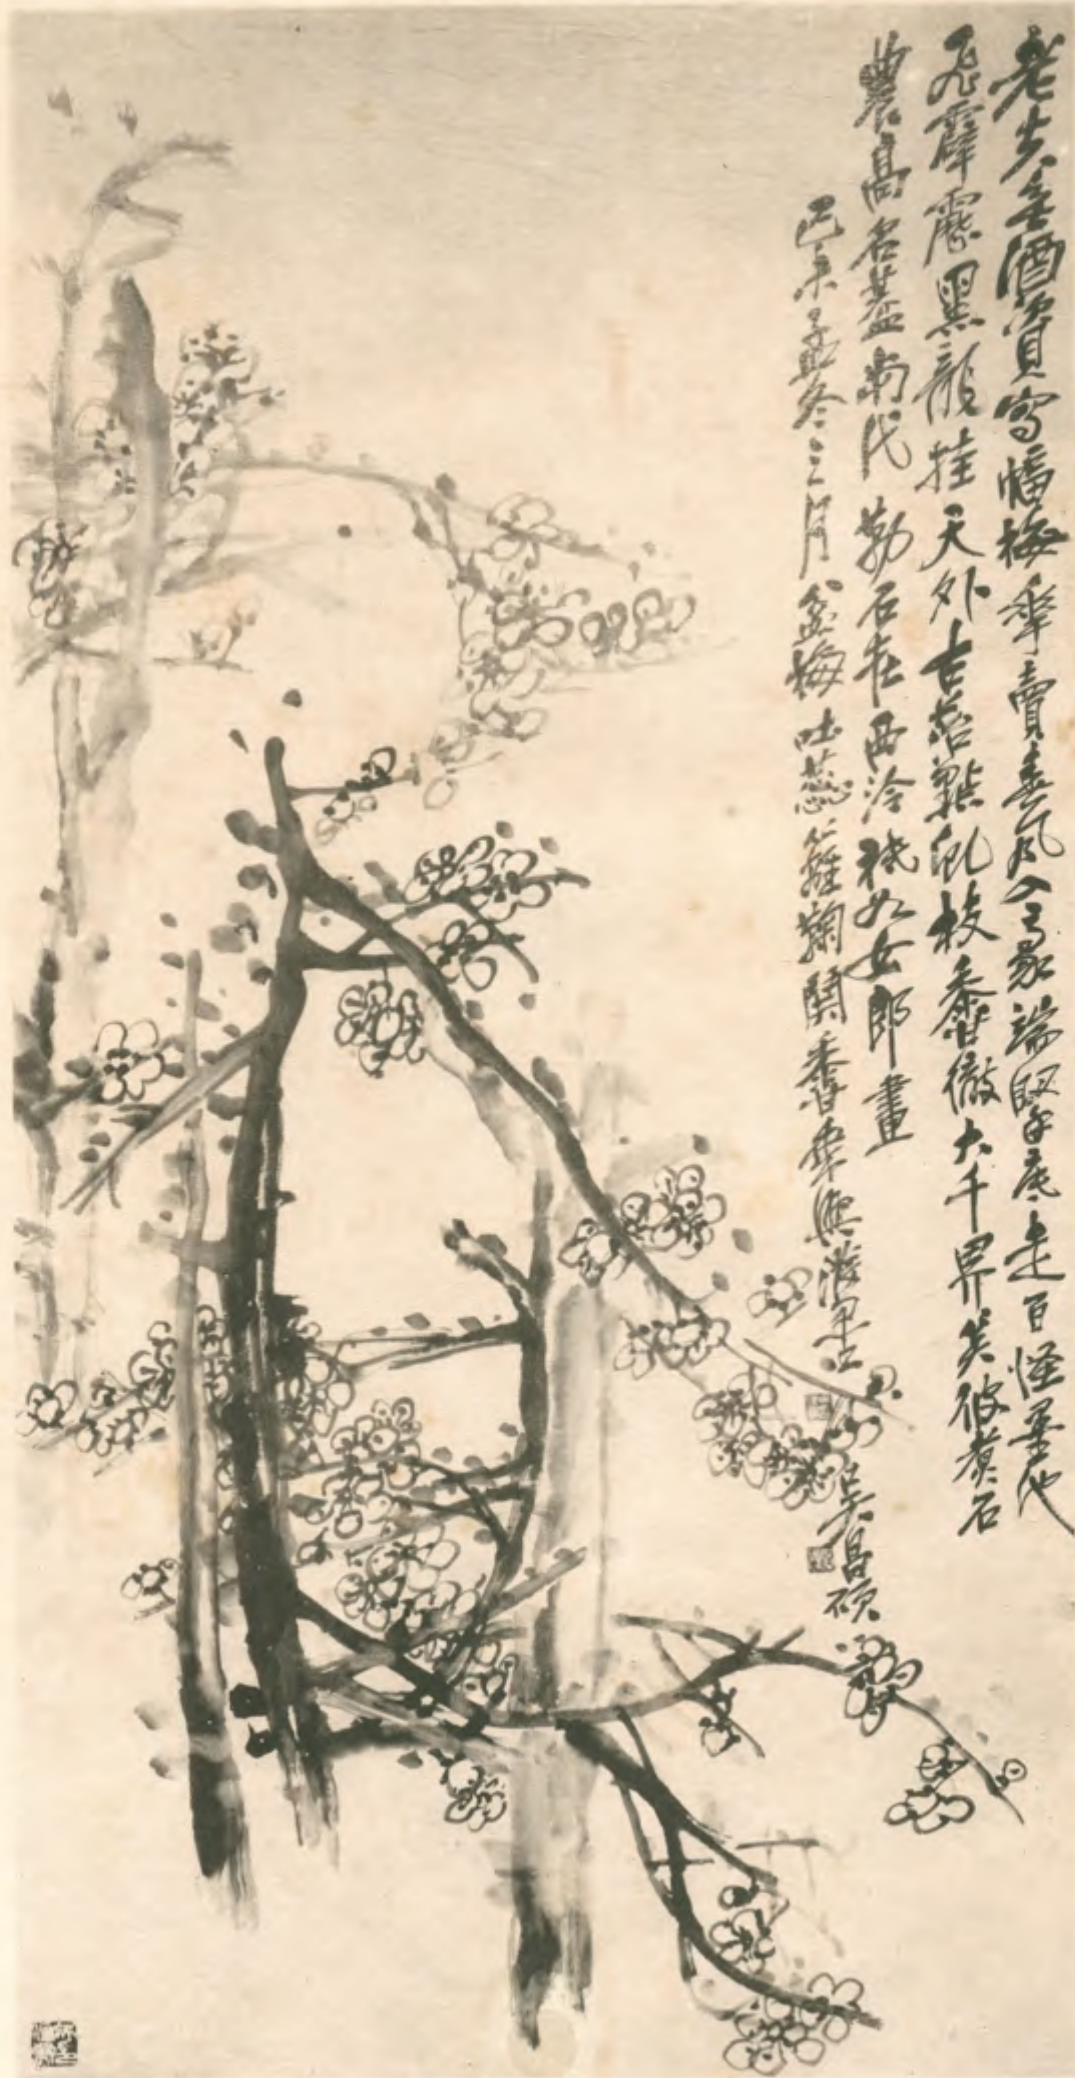 老夫無酒資寫幅梅華賣春風入篆端腕底走百怪墨池
飛霹靂黑龍挂天外古苔點虬枝香徹大千界笑彼煮石
農高名蓋當代勒石在西泠秪如女郎畫
己未孟冬之月盆梅吐蕊籬鞠鬥香乘興潑墨
吳昌碩